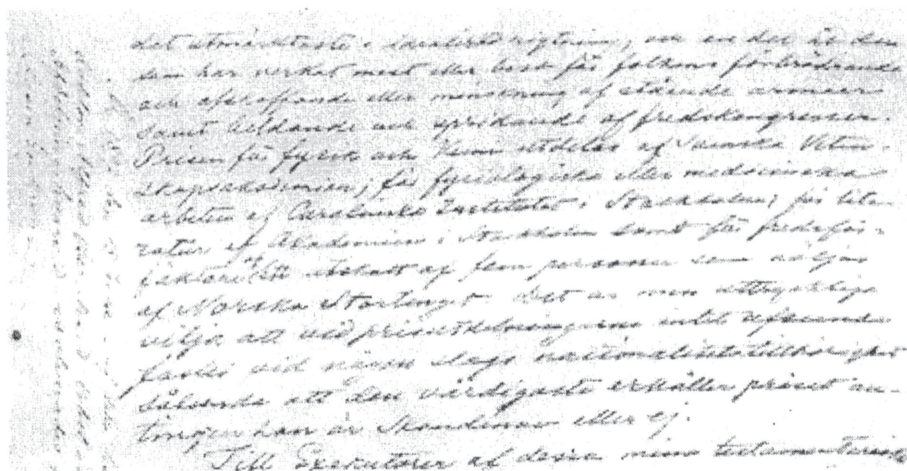 det utmärktaste i idealisk rigtning; och en del åt den
som har verkat mest eller best för folkens förbrödrande
och afskaffande eller minskning af stående armeer
samt bildande och spridande af fredskongresser.
Prisen för fysik och kemi utdelas af Svenska Veten-
skapsakademien; för fysiologiska eller medicinska
arbeten af Carolinska Institutet i Stockholm; för lite-
ratur af Akademien i Stockholm samt för fredsför-
fäktare af ett utskott af fem personer som väljas
af Norska Stortinget. Det är min uttryckliga
vilja att vid prisutdelningarna intet afseende
fästes vid någon slags nationalitetstillhörighet
sålunda att den värdigaste erhåller priset an-
tingen han är Skandinav eller ej.
Till Exekutorer af dessa mina testamentariska